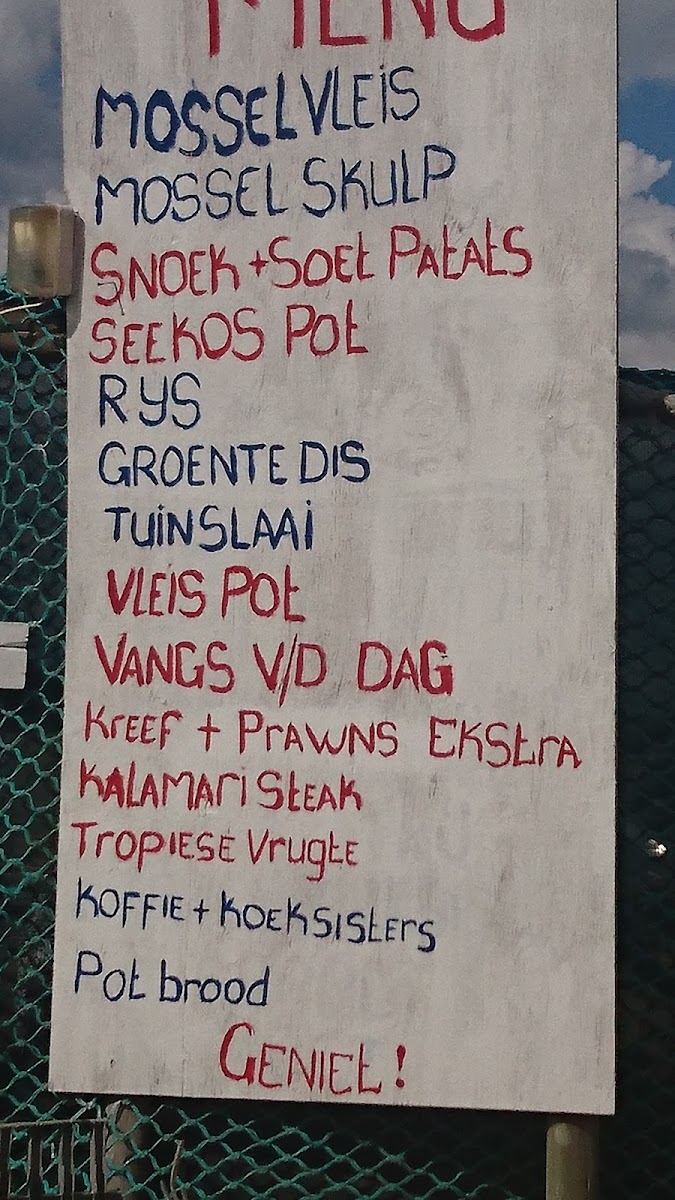 MENU
MOSSELVLEIS
MOSSEL SKULP
SNOEK + SOEt PAtAtS
SEEKOS POt
RYS
GROENTE DIS
TUiNSLAAi
VLEiS POt
VANGS V/D DAG
KrEEF + PrAWNS EKStrA
KALAMAri StEAK
TrOPIESE VrugtE
KOFFIE + KOEKSIStErS
Pot brood
GENIEt!